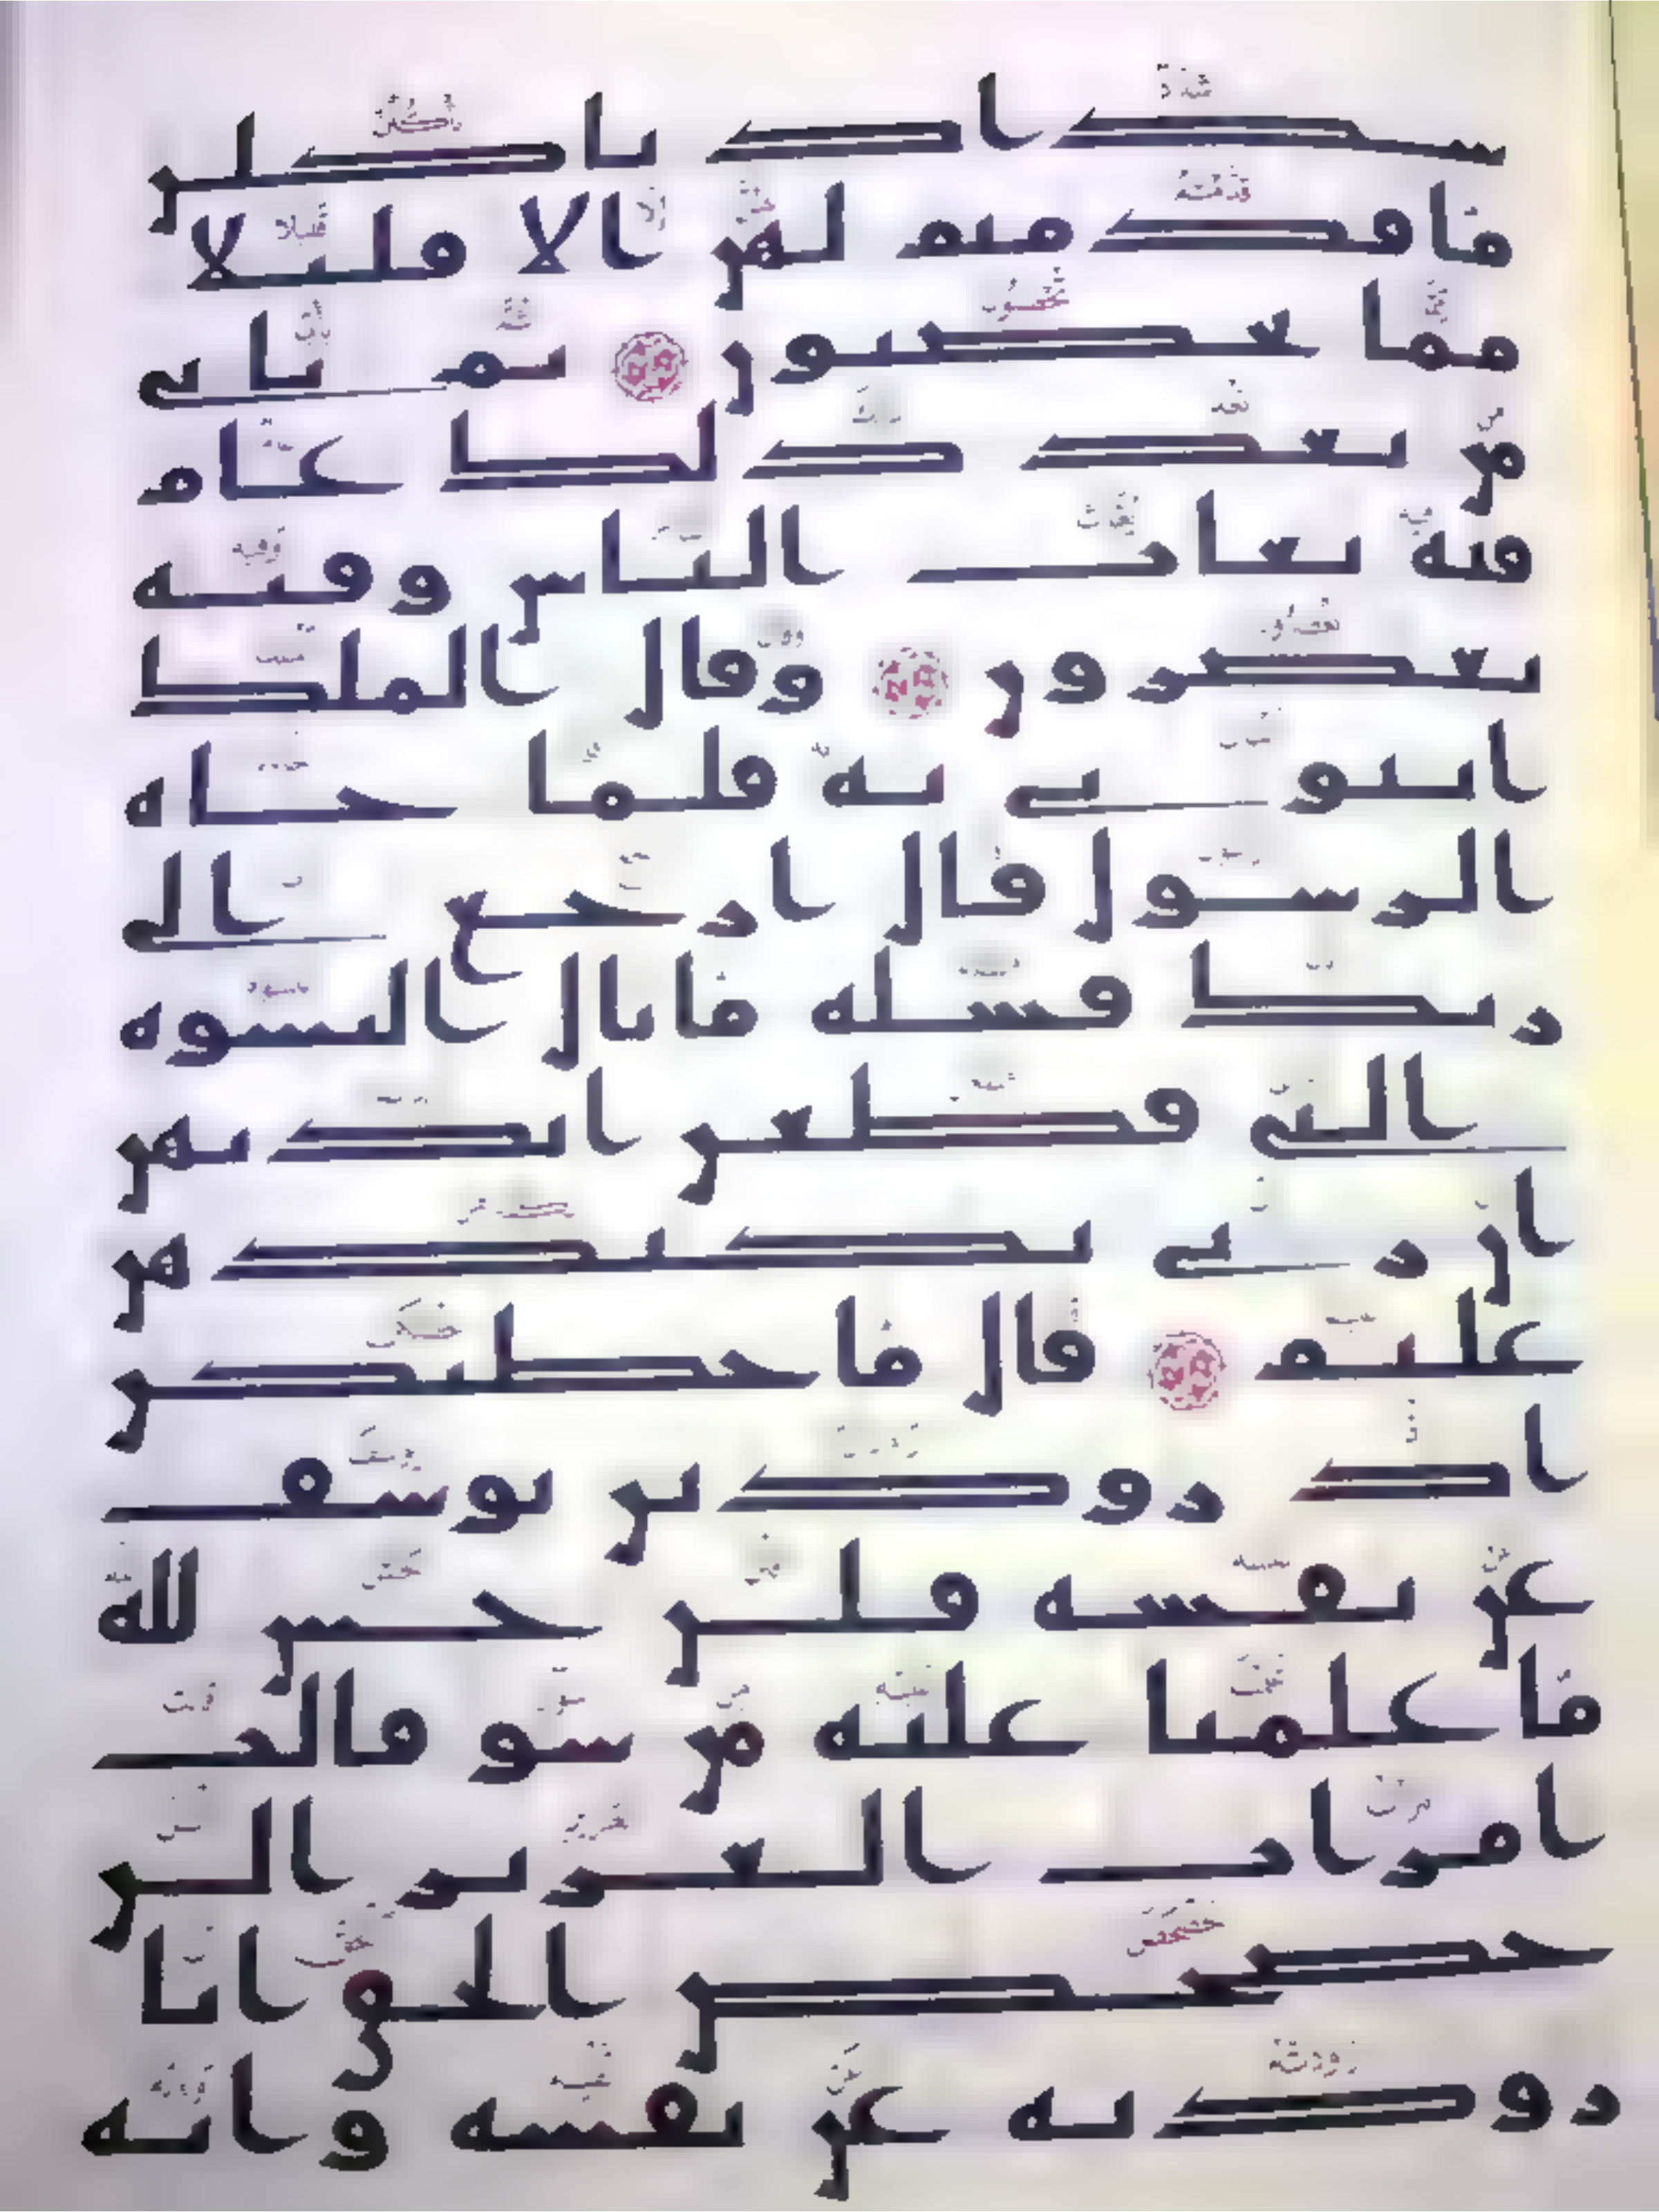 شداد ياكلن
ما قدمتم لهن الا قليلا
مما تحصنون ثم ياتي
من بعد ذلك عام
فيه يغاث الناس وفيه
يعصرون وقال الملك
ائتوني به فلما جاه
الرسول قال ارجع الى
ربك فسله ما بال النسوة
التي قطعن ايديهن
ان ربي بكيدهن
عليم قال ما خطبكن
اذ رودتن يوسف
عن نفسه قلن حش لله
ما علمنا عليه من سو قالت
امرات العزيز الن
حصحص الحق انا
رودته عن نفسه وانه